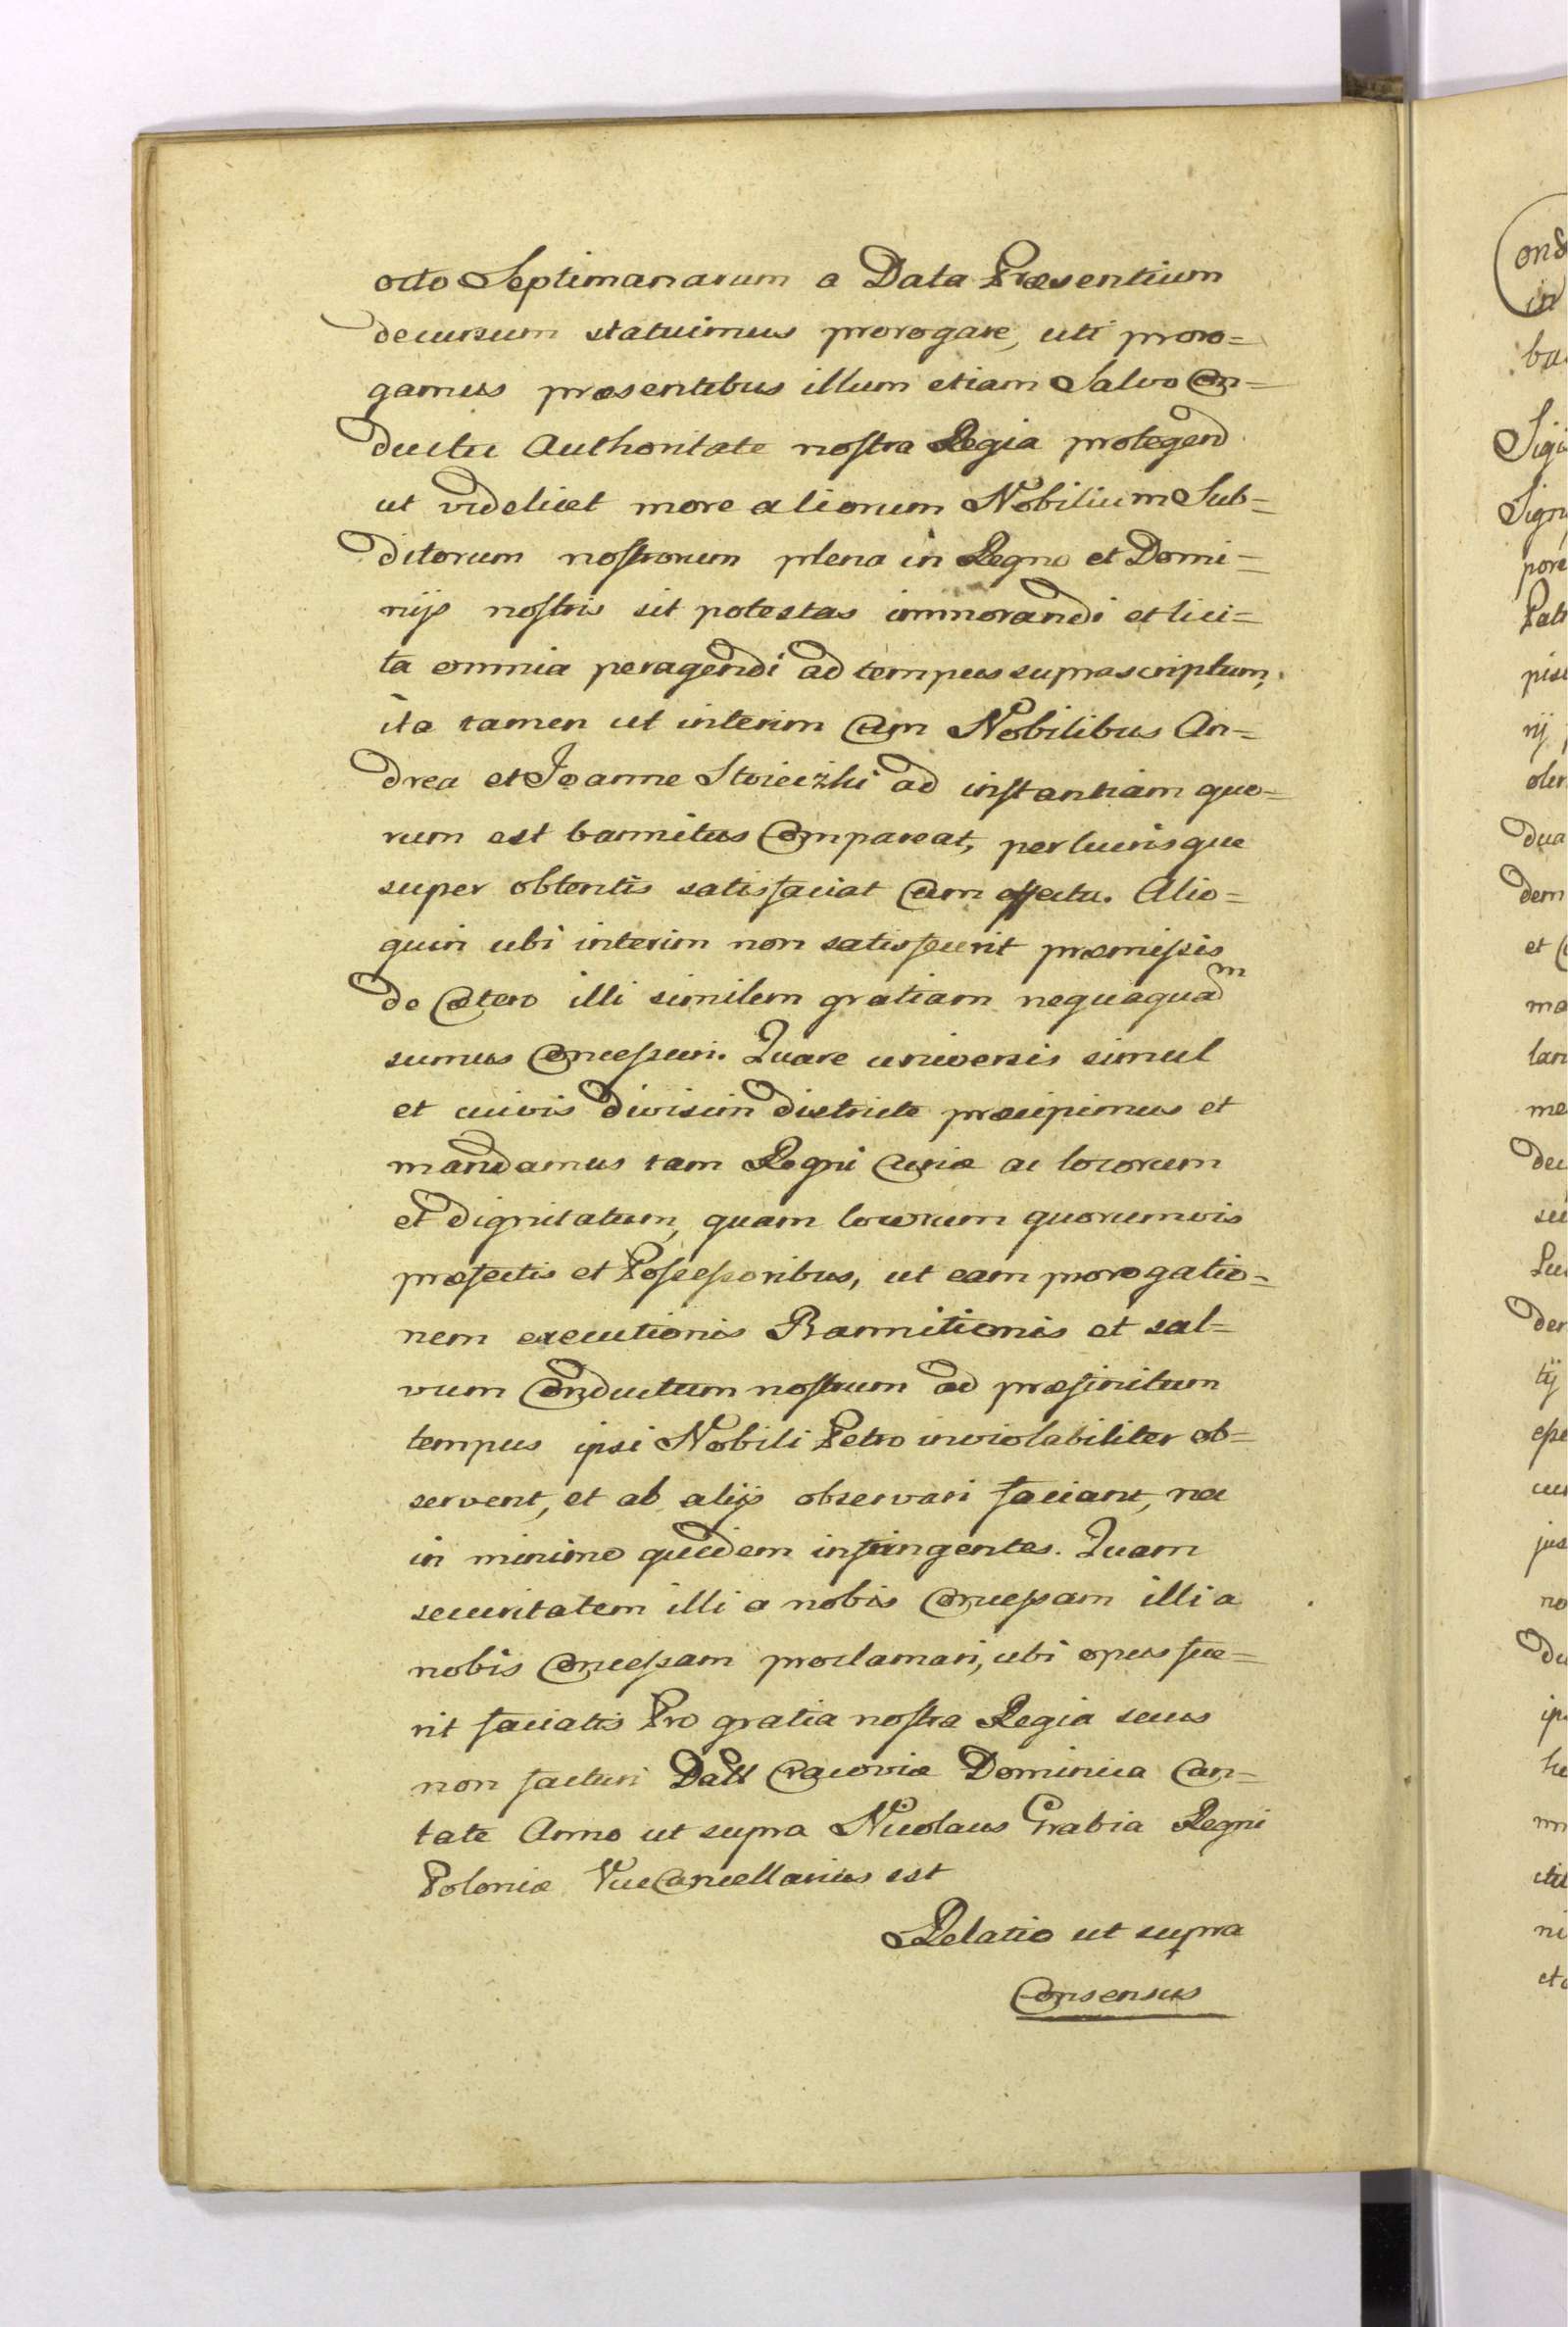 octo Septimanarum a Data Præsentium
decursum statuimus prorogare, uti proro=
gamus præsentibus illum etiam Salvo Con=
ductu Authoritate nostra Regia protegend
ut videlicet more aliorum Nobilium Sub=
ditorum nostrorum plena in Regno et Domi=
nijs nostris sit potestas immorandi et lici=
ta omnia peragendi ad tempus suprascriptum,
ita tamen ut interim Cum Nobilibus An=
drea et Joanne Stoieczki ad instantiam quo=
rum est bannitus Compareat, per lucrisque
super obtentis satisfaciat Cum effectu. Alio=
quin ubi interim non satisfecerit præmissis
de Cætero illi similem gratiam nequaquam
sumus Concessuri. Quare universis simul
et cuivis divisim districte præcipimus et
mandamus tam Regni Curiæ ac locorum
et dignitatum, quam locorum quorumvis
præfectis et Possessoribus, ut eam prorogatio=
nem executionis Bannitionis et sal=
vum Conductum nostrum ad præfinitum
tempus ipsi Nobili Petro inviolabiliter ob=
servent, et ab alijs observari faciant, nec
in minimo quidem infringentes. Quam
securitatem illi a nobis Concessam illi a
nobis Concessam proclamari, ubi opus fue=
rit faciatis Pro gratia nostra Regia secus
non facturi Datt Cracoviæ Dominica Can=
tate Anno ut supra Nicolaus Grabia Regni
Poloniæ ViceCancellarius sst
Relatio ut supra
Consensus